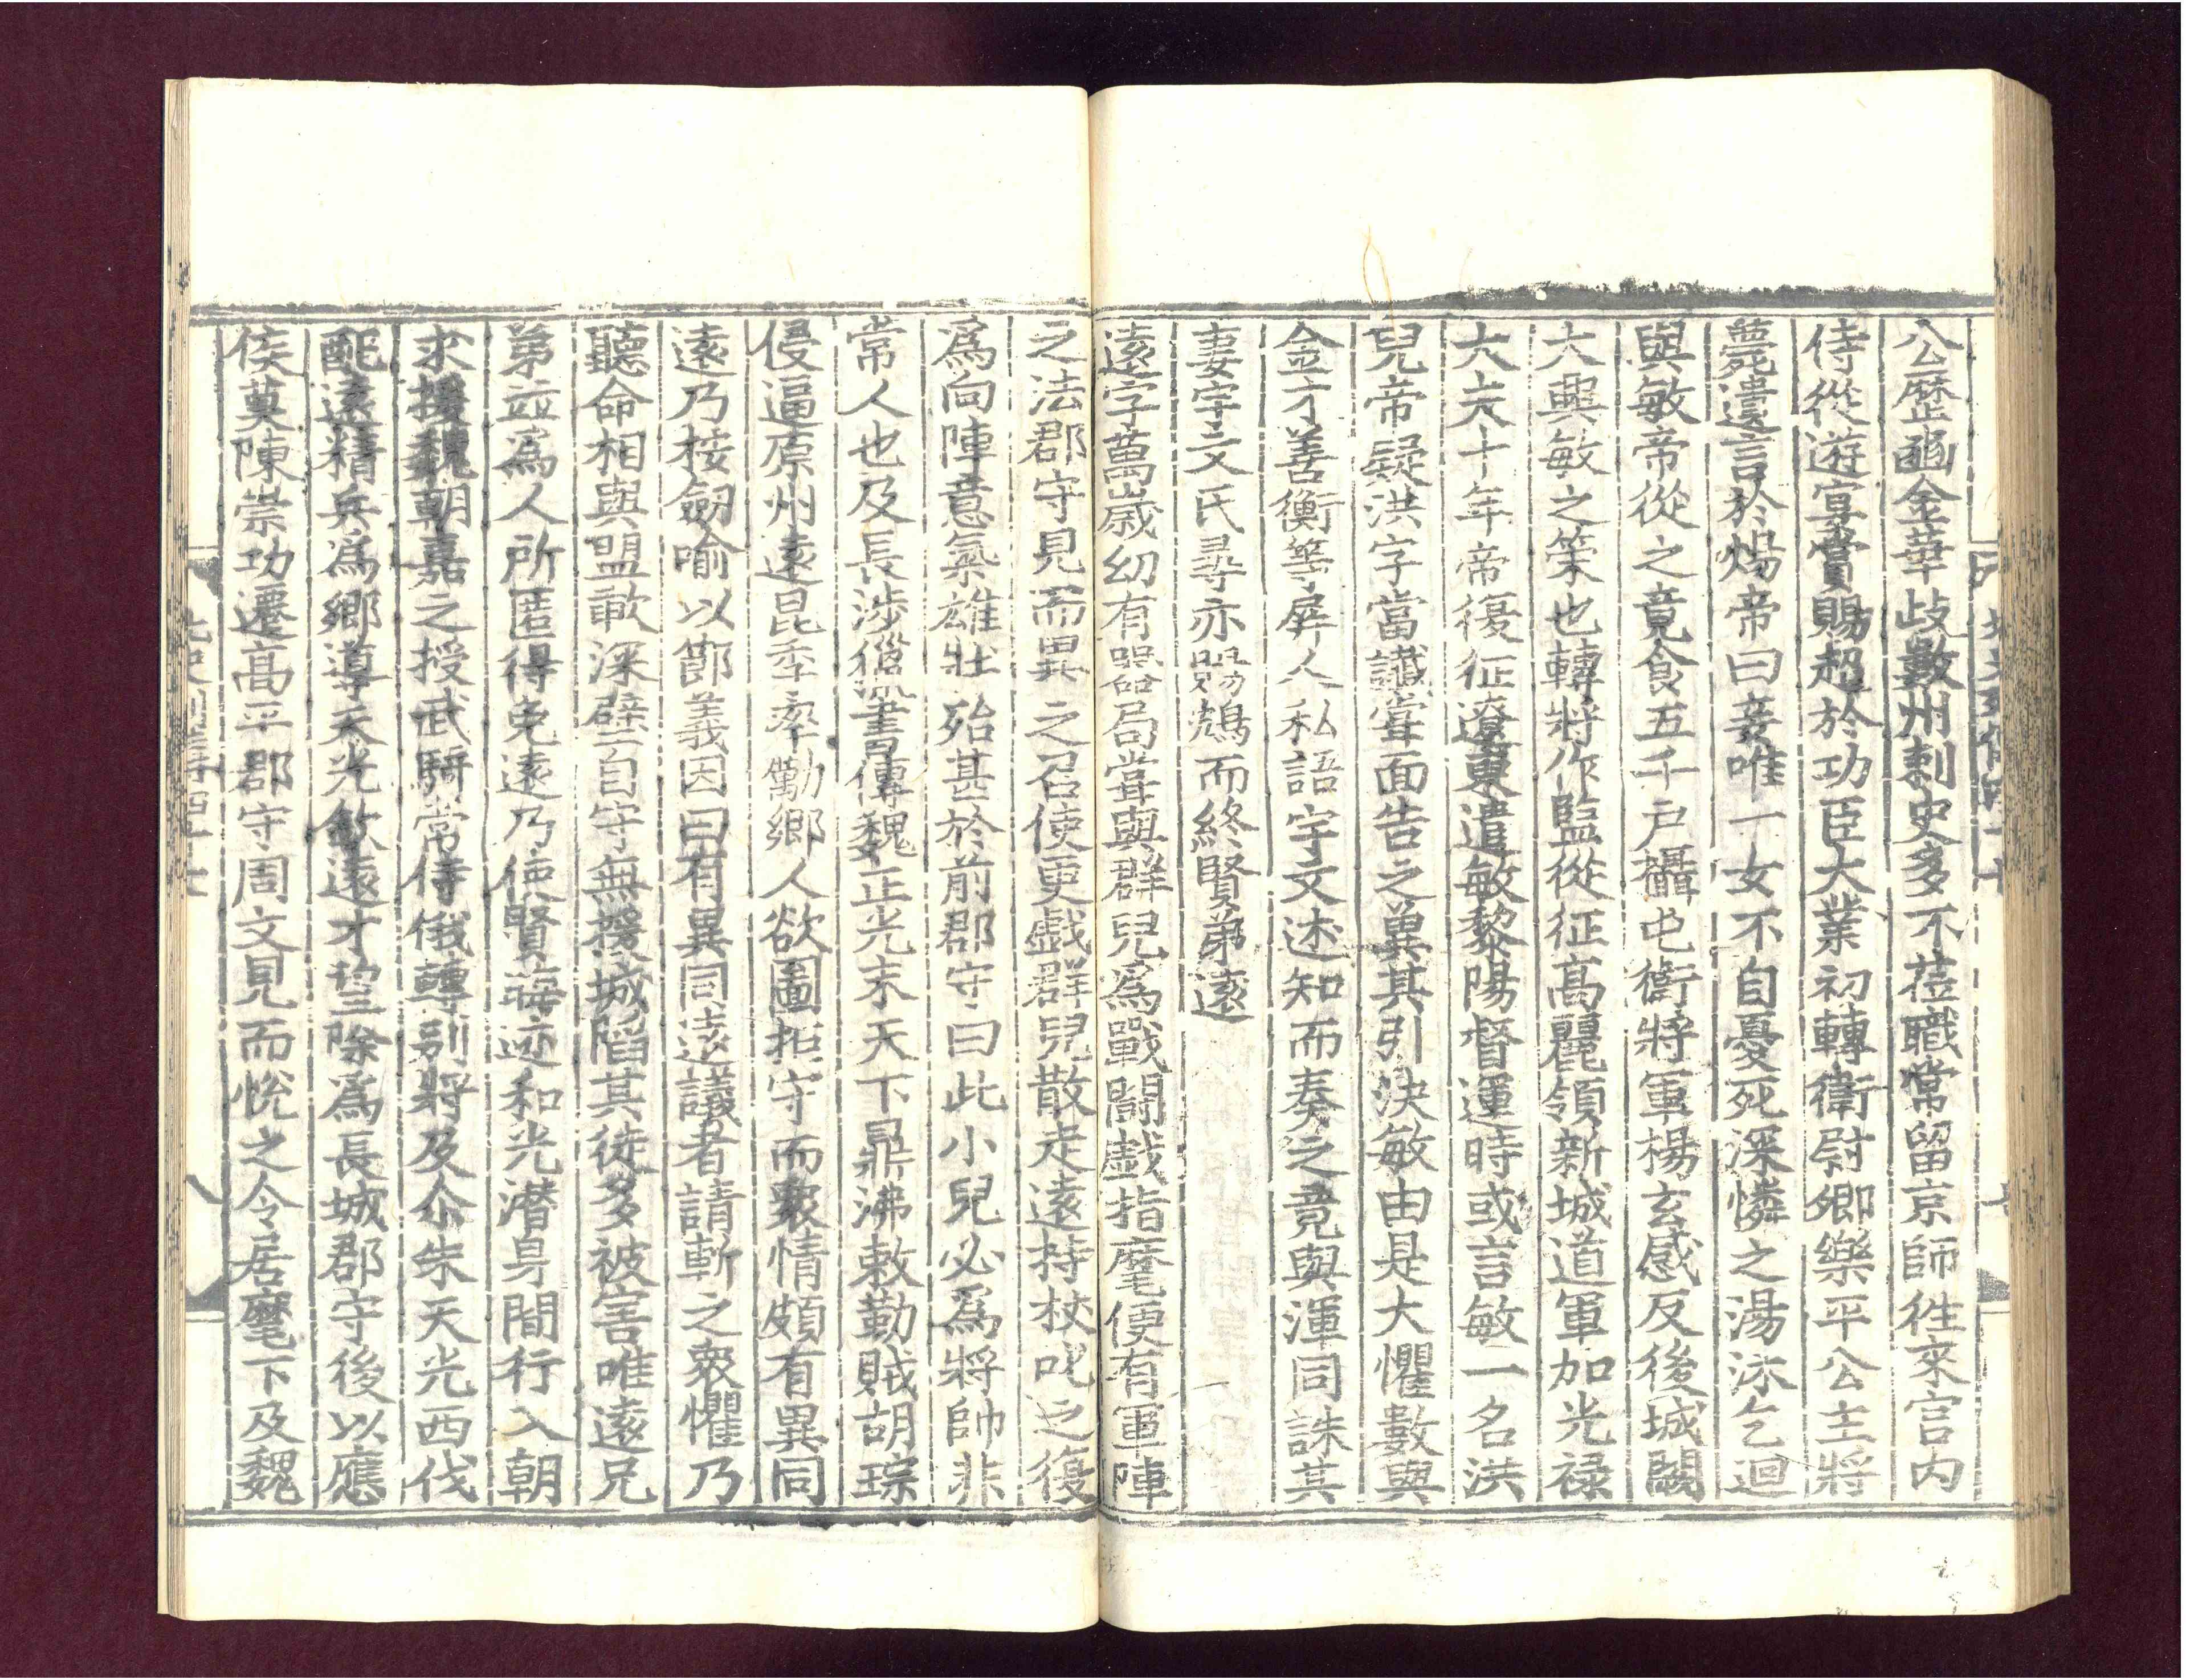 公歷豳金華歧數州刺史多不莅職常留京師往來宮内
侍從遊宴賞賜超於功臣大業初轉衛尉卿樂平公主將
薨遺言於煬帝曰妾唯一女不自憂死深憐之湯沐乞迴
與敏帝從之竟食五千戶攝屯衛將軍楊玄感反後城闕
大興敏之策也轉將作監從征高麗領新城道軍加光祿
大夫十年帝復征遼東遣敏黎陽督運時或言敏一名洪
兒帝疑洪字當讖嘗面告之冀其引決敏由是大懼數與
金才善衡等屏人私語宇文述知而奏之竟與渾同誅其
妻宇文氏尋亦賜鴆而終賢弟遠
遠字萬歲幼有器局嘗與群兒爲戰鬪戲指麾便有軍陣
之法郡守見而異之召使更戲群兒散走遠持杖叱之復
爲向陣意氣雄壯殆甚於前郡守曰此小兒必爲將帥非
常人也及長涉獵書傳魏正光末天下鼎沸敕勒賊胡琮
侵逼原州遠昆季率勵鄉人欲圖拒守而衆情頗有異同
遠乃按劒喻以節義因曰有異同遠議者請斬之衆懼乃
聽命相與盟歃深壁自守無援城陷其徒多被害唯遠兄
弟並爲人所匿得免遠乃使賢晦迹和光潛身間行入朝
求援魏朝嘉之授武騎常侍俄轉別將及尒朱天光西伐
配遠精兵爲鄉導天光欽遠才望除爲長城郡守後以應
侯莫陳崇功遷高平郡守周文見而悅之令居麾下及魏